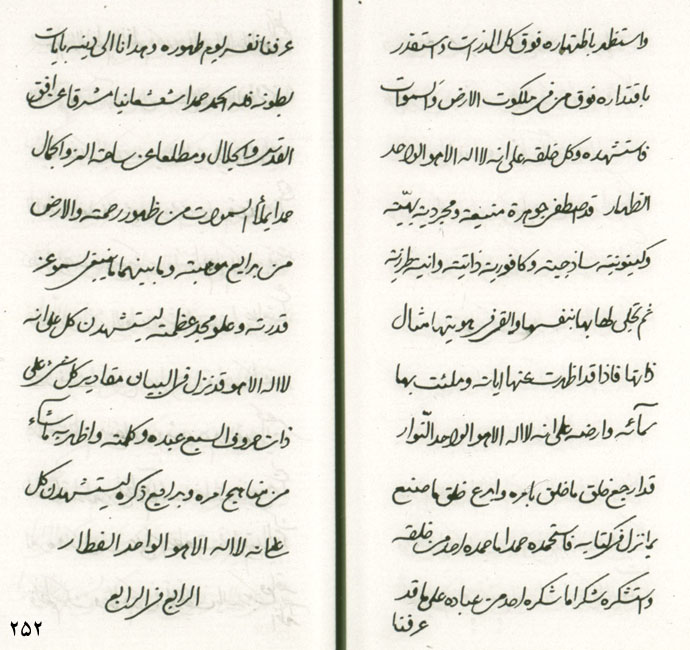 واستظهر باظتهاره فوق كل الذرات واستقدر
باقتداره فوق من فی ملكوت الارض والسموات
فاستشهده وكل خلقه علی انه لااله الاهو الواحد
الظهار قد اصطفی جوهرة منيعة ومجردية بهيّة
وكينونيته ساذجية وكافورية ذاتية وانية طرزية
ثم تجلی لها بها بنفسها والقی فی هويتها مثال
ذاتها فاذا قد اظهرت عنها اياته وملئت بها
سمائه وارضه علی انه لااله الاهو الواحد النّوار
قد ارجع خلق ماخلق بامره وابدع خلق ماصنع
بمانزل فی كتابه فاستحمده حمدا ماحمده احد من خلقه
واستشكره شكرا ماشكره احد من عباده علی ماقد
عرفنا
عرفنا نفسه يوم ظهوره وهدانا الی دينه بايات
بطونه فله الحمد حمدا شعشعانيا مشرقا عن افق
القدس والجلال ومطلعا عن ساحة العز والجمال
حمدا يملأ السموات من ظهور رحمته والارض
من بدايع موهبته ومابينهما ماينبغی لسمو عز
قدرته وعلو مجد عظمته ليستشهدن كل علی انه
لااله الاهو قد نزل فی البيان مقادير كل شیء علی
ذات حروف السبع عبده وكلمته واظهر به مايشاء
من مناهج امره وبدايع ذكره ليستشهدن كل
علی انه لااله الاهو الواحد الفطار
الرابع فی الرابع
۲۵۲